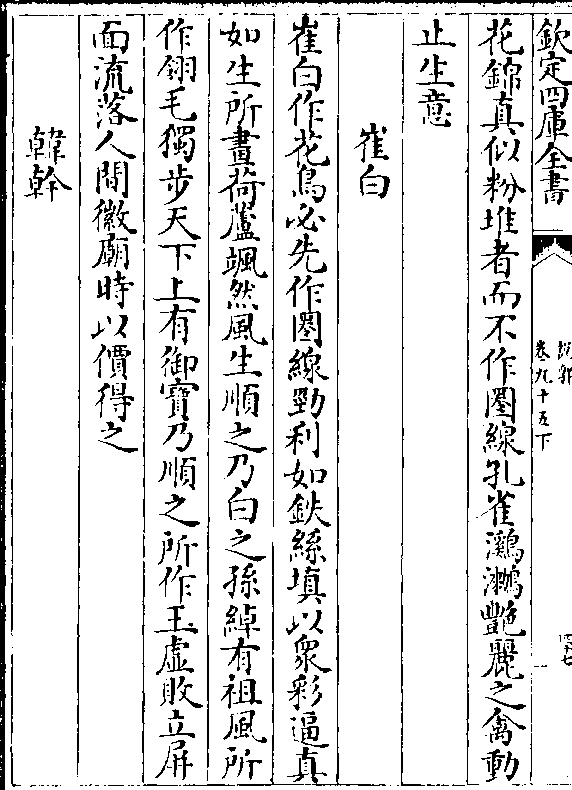 欽定四庫全書
說郛
卷九十五下
花錦真似粉堆者而不作圏線孔雀鸂𪆟艷麗之禽動
止生意
崔白
崔白作花鳥必先作圏線勁利如鉄絲填以衆彩逼真
如生所畫荷蘆颯然風生順之乃白之孫綽有祖風所
作翎毛獨步天下上有御寶乃順之所作玉虛敗立屏
面流落人間徽廟時以價得之
韓幹